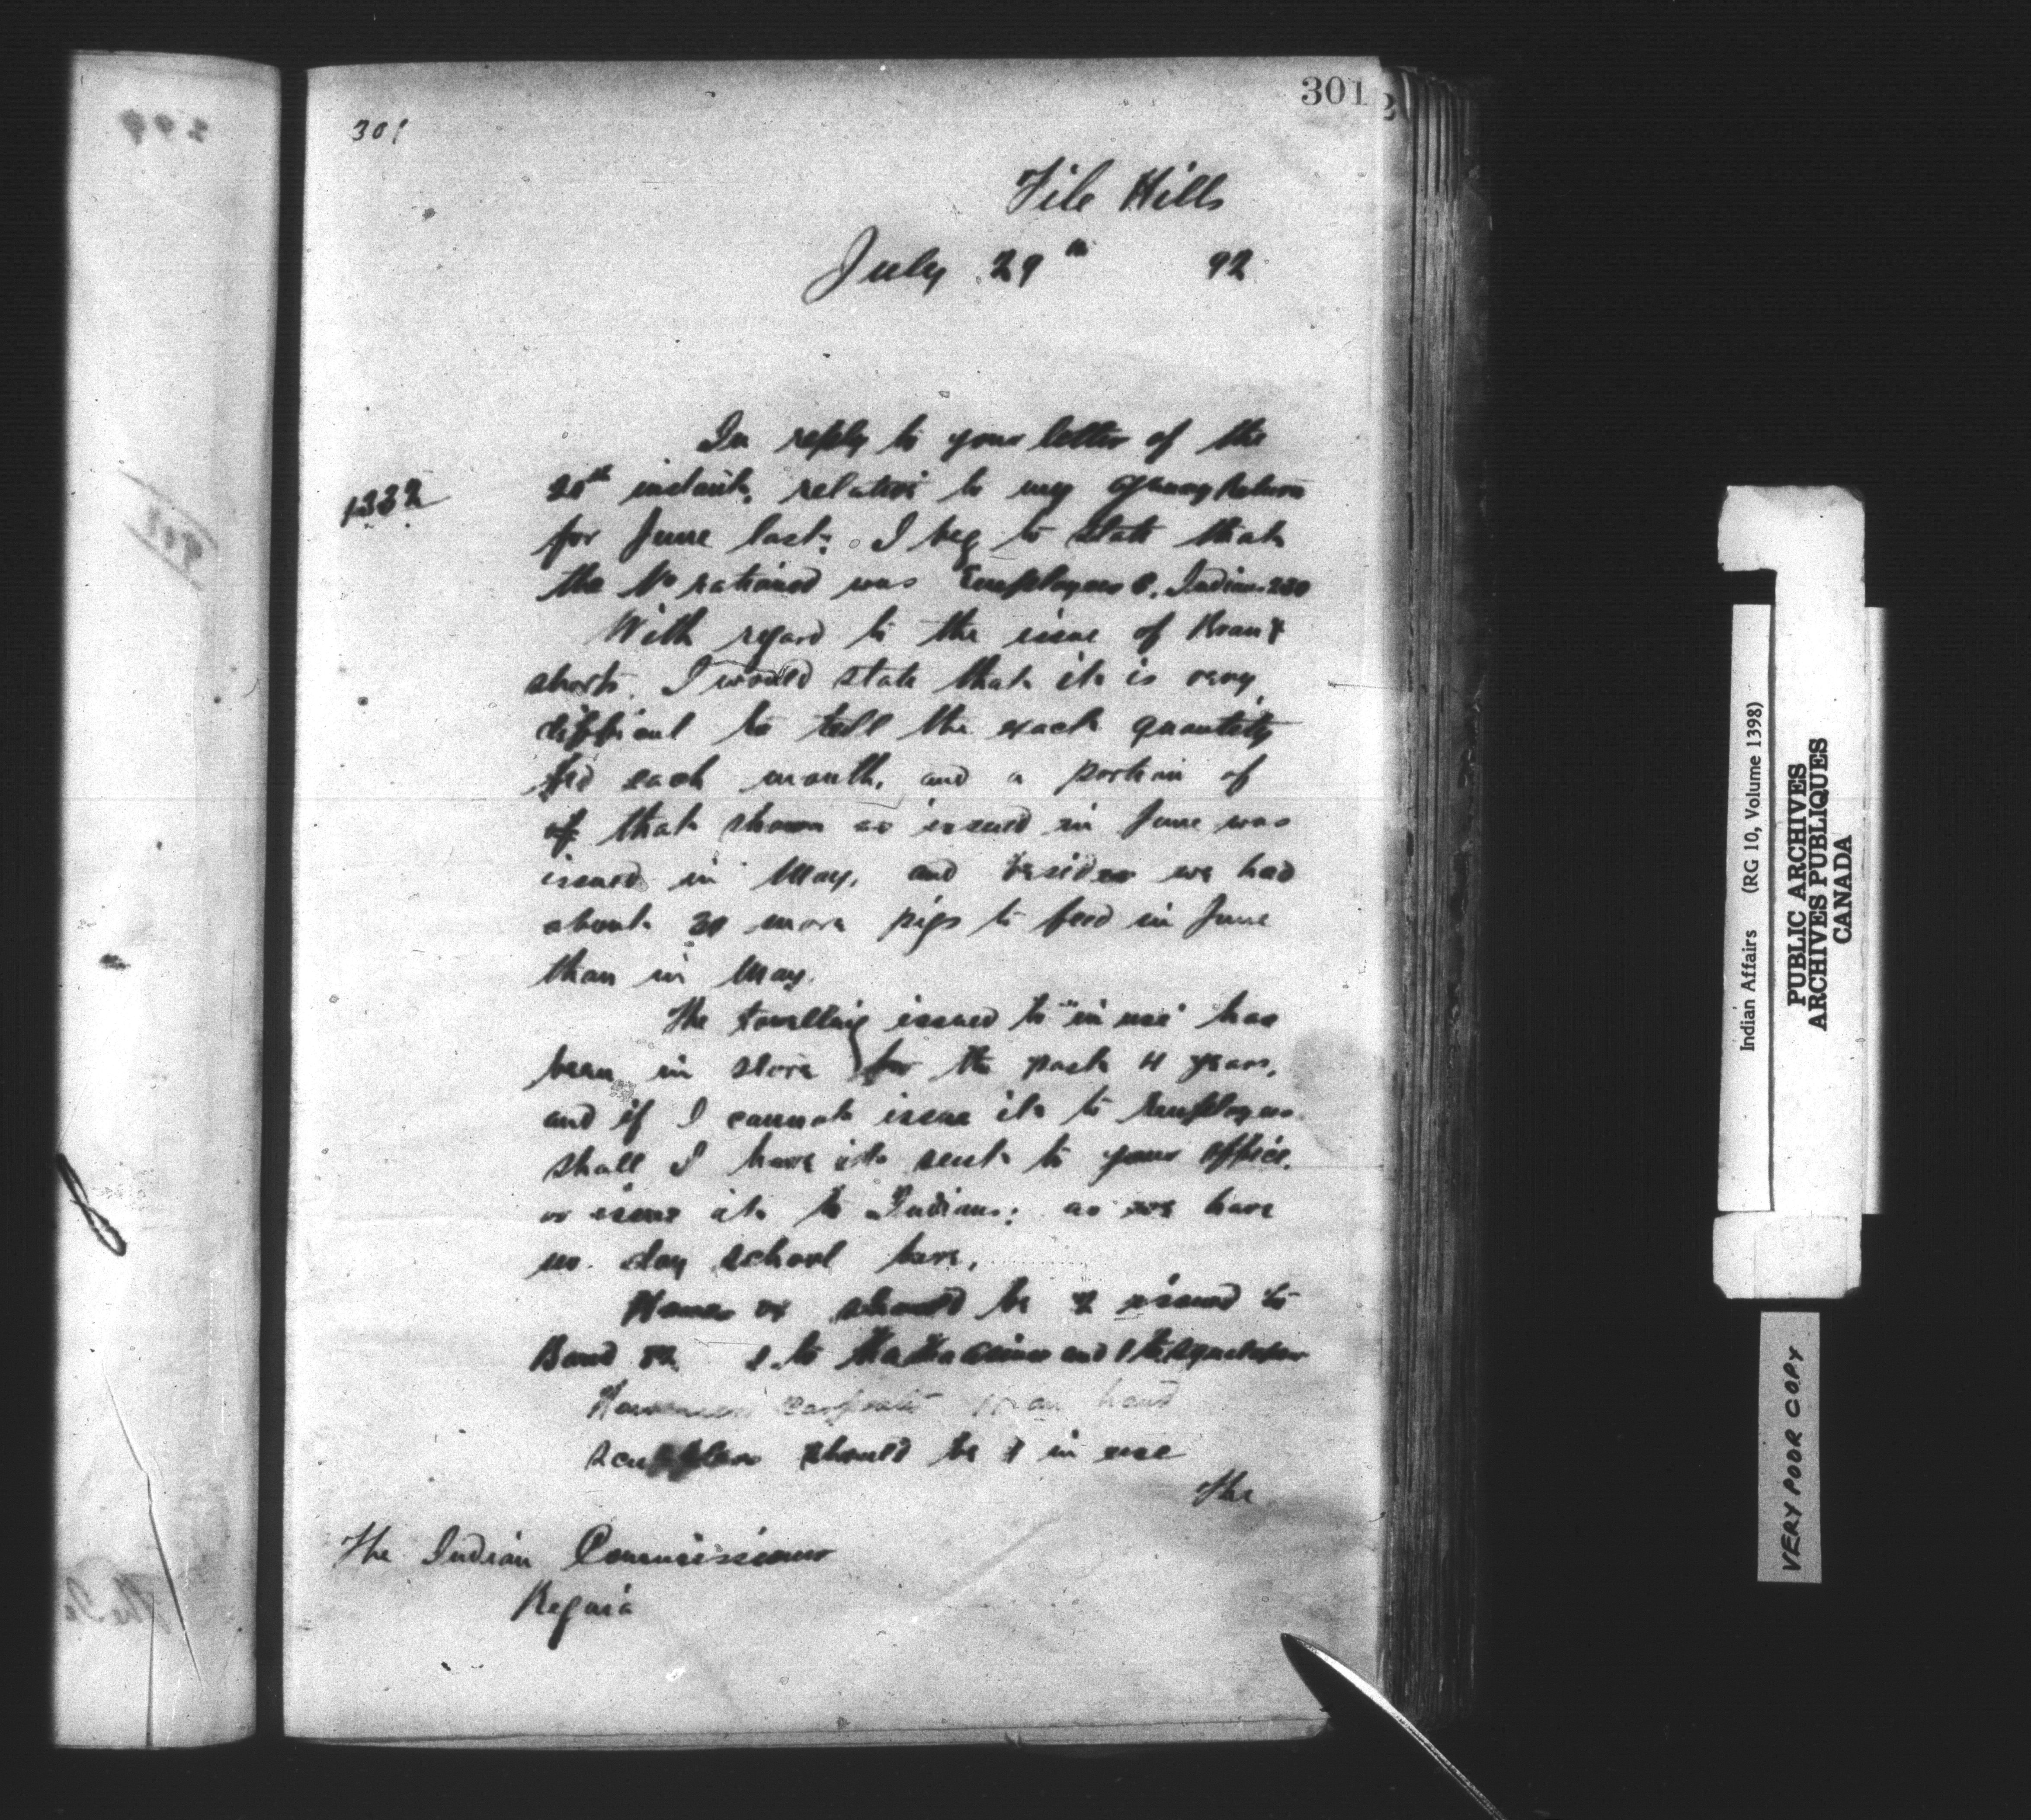 301
301
File Hills
July 29th 92
In reply to your letter of the
1332
20th instant, relative to my Quarry Return
for June last: I beg to state that
the No rationed was Employees 8. Indians 230
With regard to the issue of Bran &
shorts. I would state that it is very
difficul to tell the exact quantity
fed each month, and a portion of
of that shown as issued in June was
issued in May, and besides we had
about 30 more pigs to feed in June
than in May.
The towelling issued to "in use" has
been in store for the past 4 years,
and if I cannot issue it to Employees
shall I have it sent to your office.
or issue it to Indians: as we have
no day school here.
Hames ox should be 2 issued to
Band 82 1 to and 1 to
on hand
should be 1 in use
The
The Indian Commissioner
Regina
Indian Affairs (RG 10, Volume 1398)
PUBLIC ARCHIVES
ARCHIVES PUBLIQUES
CANADA
VERY POOR COPY